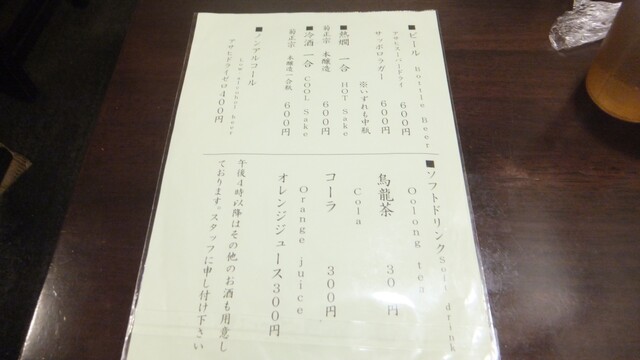 ■ビール Bottle Beer
アサヒスーパードライ 600円
サッポロラガー 600円
※いずれも中瓶
■熱燗 一合 HOT Sake
菊正宗 本醸造 600円
■冷酒一合 COOL Sake
菊正宗 本醸造一合瓶 600円
■ノンアルコール
beer
アサヒドライゼロ400円
■ソフトドリンクSoft drink
Oolong tea
烏龍茶 30 円
Cola
コーラ 300円
Orange juice
オレンジジュース300円
午後4時以降はその他のお酒も用意し
ております。スタッフに申し付け下さい